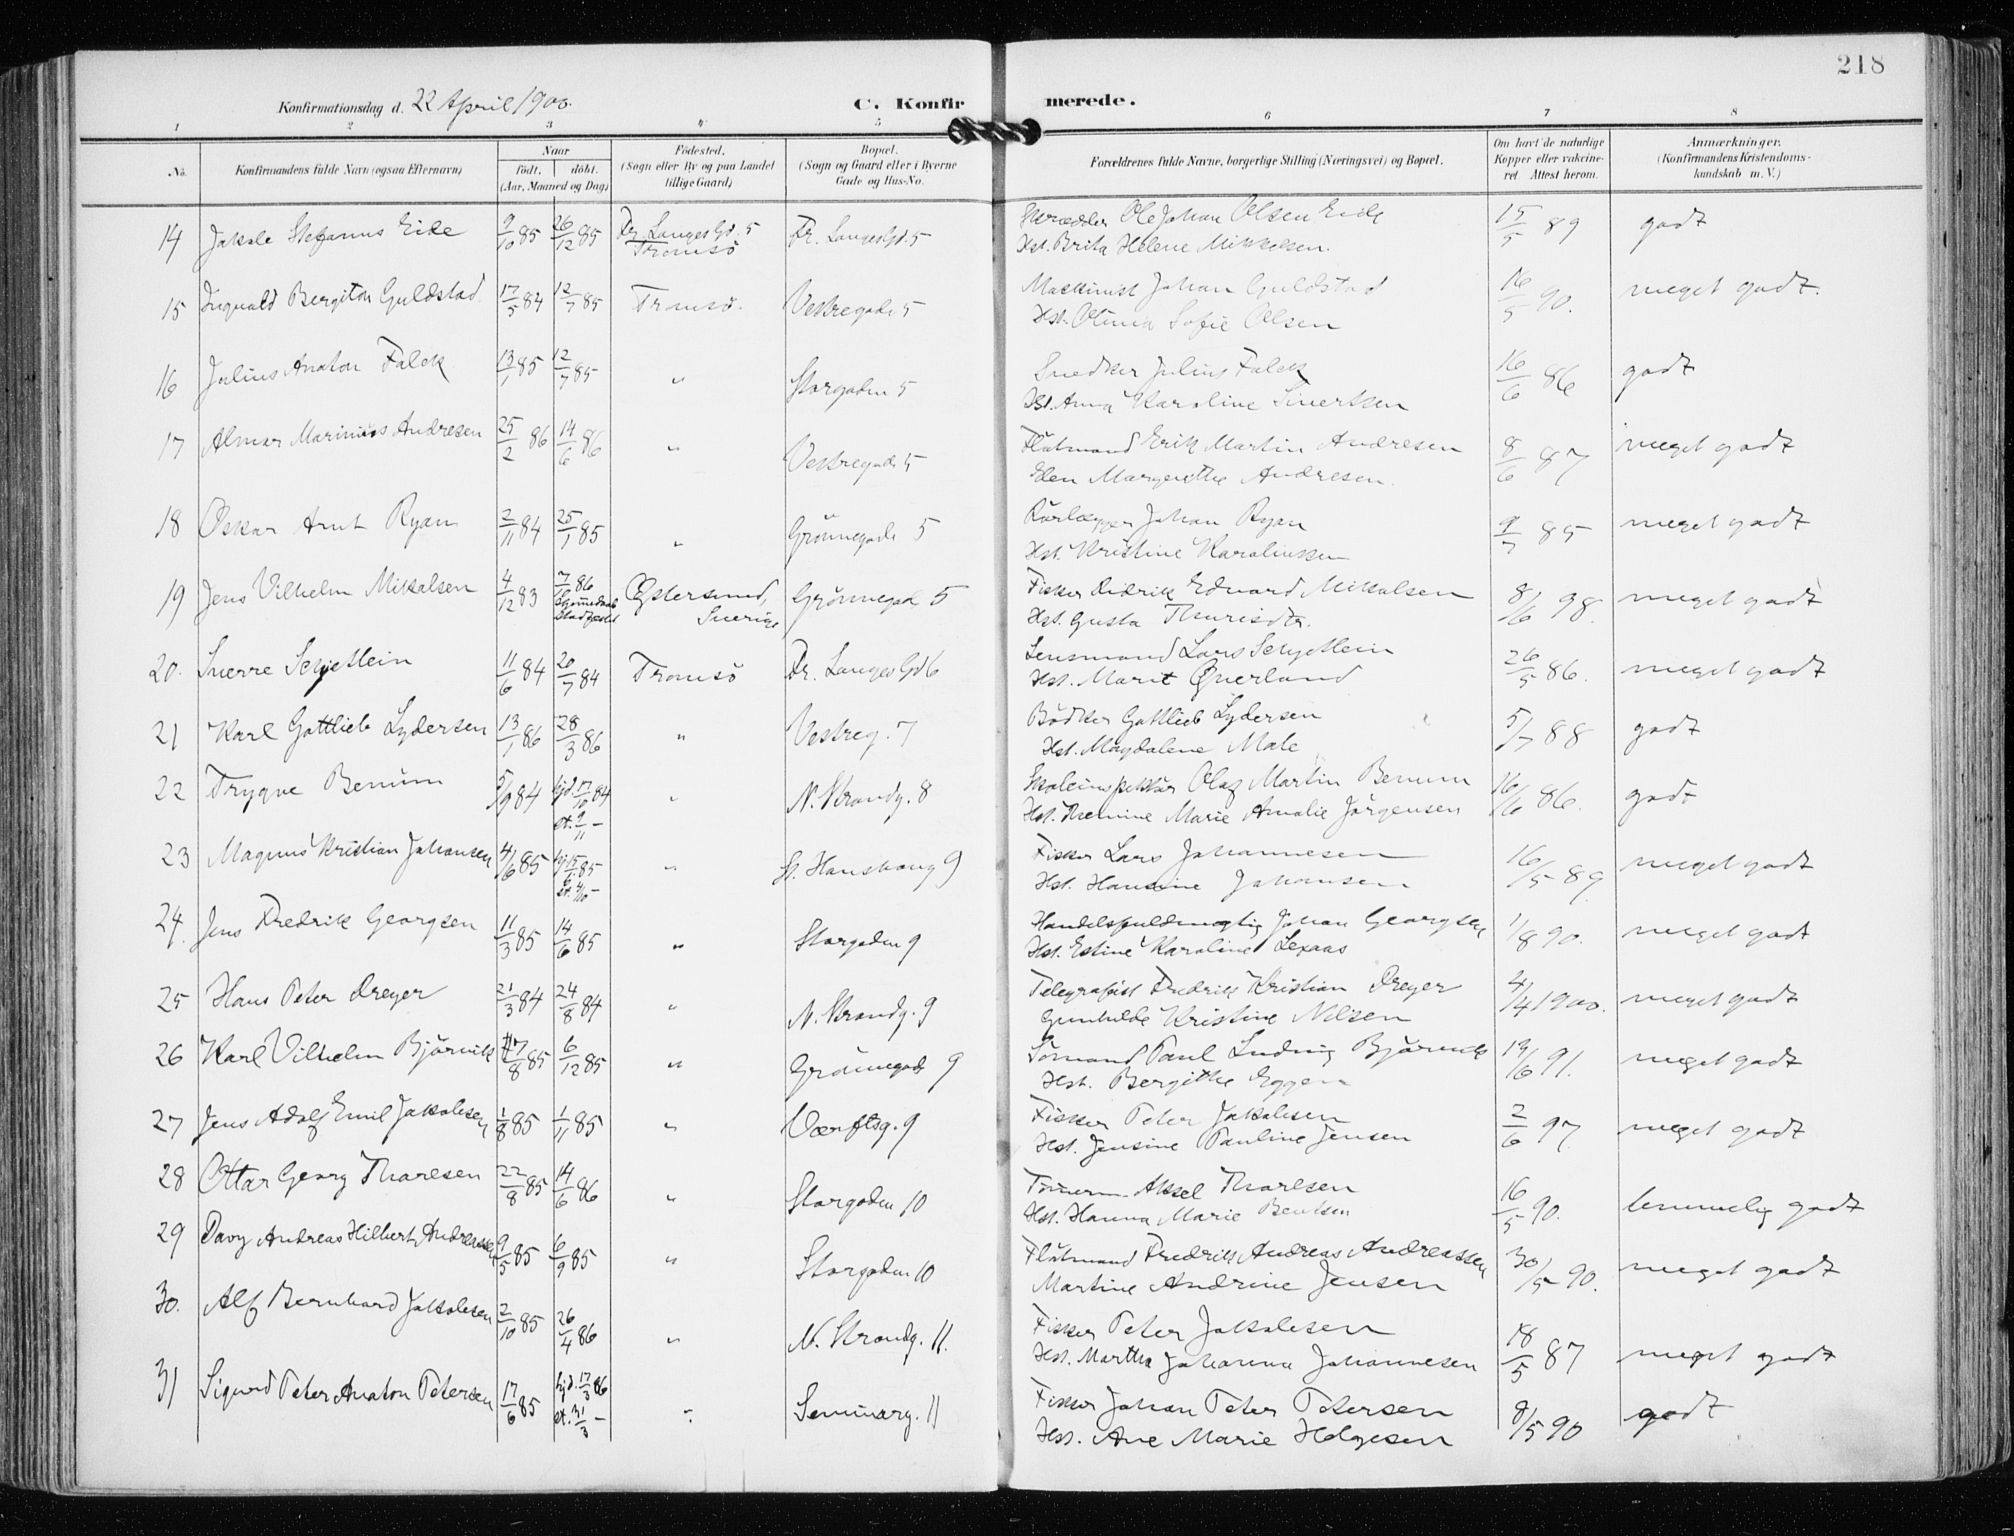 218
Konfirmationsdag d. 22 April 1900.
C. Konfirmerede.
1 2 3 4 5 6 7 8
No. Konfirmandens fulde Navn (ogsaa Efternavn) Naar født, døbt. (Aar, Maaned og Dag) Fødested, (Sogn eller By og paa Landet tillige Gaard) Bopæl. (Sogn og Gaard eller i Byerne Gade og Hus-No. Forældrenes fulde Navne, borgerlige Stilling (Næringsvei) og Bopæl. Om havt de naturlige Kopper eller vaccineret. Attest herom. Anmærkninger. (Konfirmandens Kristendomskundskab m. V.)
14 Jakob Stefanus Eide 9/10 85 26/12 85 Dr. Langes Gd. 5 Tromsö Dr. Langes Gd. 5 Skrædder Ole Johan Olsen Eide 15/5 89 godt
Hst. Brita Helene Mikkelsen.
15 Ingvald Bergiton Guldstad 17/5 84 12/7 85 Tromsö. Vestregade 5 Maskinist Johan Guldstad 16/5 90. meget godt.
Hst. Olina Sofie Olsen
16 Julius Anaton Falck 13/1 85 12/7 85 " Storgaden 5 Snedker Julius Falck 16/6 86 godt
Hst. Anna Karoline Sivertsen
17 Almar Marinius Andresen 25/2 86 14/6 86 " Vestregade 5 Flåtmand Erik Martin Andresen 8/6 87 meget godt
Elen Margrethe Andresen.
18 Oskar Arnt Ryan 2/11 84 25/1 85 " Grönnegade 5 Rörlægger Johan Ryan 9/7 85 meget godt
Hst. Kristine Karoliussen
19 Jens Vilhelm Mikalsen 4/12 83 Østersund, Sverige Grönnegade 5 Fisker Didrik Edvard Mikalsen 8/6 98. meget godt
Hst. Gusta Thurisdtr.
20. Sverre Schjetlein 11/6 84 20/7 84 Tromsö Dr. Langes Gd 6 Lensmand Lars Schjetlein 26/5 86. meget godt
Hst. Marit Øverland
21 Karl Gottlieb Lydersen 13/1 86 28/3 86 " Vestreg. 7 Bödker Gottlieb Lydersen 5/7 88 godt
Hst. Magdalene Male
22 Trygve Benum 5/9 84 hjd. 17/10 84 st. 9/11 – " N. Strandg. 8 Skoleinspektör Olaf Martin Benum 16/6 86. godt
Hst. Themine Marie Amalie Jörgensen
23 Magnus Kristian Johansen 4/6 85 " St. Hanshaug 9 Fisker Lars Johannesen 16/5 89. meget godt
Hst. Hansine Johansen
24. Jens Fredrik Georgsen 11/3 85 14/6 85 " Storgaden 9 Handelsfuldmægtig Johan Georgsen 1/8 90. meget godt
Hst. Estine Karoline Lexaas
25 Hans Peter Dreyer 21/3 84 24/8 84 " N. Strandg. 9 Telegrafist Fredrik Kristian Dreyer 4/4 1900. meget godt
Gunhilde Kristine Nilsen
26 Karl Vilhelm Bjørvik 17/8 85 6/12 85 " Grönnegade 9 Sömand Paul Ludvig Bjørvik 13/6 91. meget godt
Hst. Bergithe Eggen
27 Jens Adolf Emil Jakobsen 1/8 85 1/11 85 " Værftsg. 9 Fisker Peter Jakobsen 2/6 97 meget godt
Hst. Jensine Pauline Jensen
28 Ottar Georg Tharesen 22/8 85 14/6 86 " Storgaden 10 Tömerm. Aksel Tharesen 16/5 90. temmelig godt
Hst. Hanna Marie Bentsen
29 Davy Andreas Hilbert Andreassen 9/5 85 6/9 85 " Storgaden 10 Flåtmand Fredrik Andreas Andreassen 30/5 90. meget godt
Martine Andrine Jensen
30. Alf Bernhard Jakobsen 2/10 85 26/4 86 " N. Strandg. 11. Fisker Peter Jakobsen 18/5 87 meget godt
Hst. Martha Johanna Johannesen
31 Sigurd Peter Anaton Petersen 17/6 85 hjd. 17/3 86 st. 31/3 – " Seminarg. 11 Fisker Johan Peter Petersen 8/5 90 godt
Hst. Ane Marie Helgesen